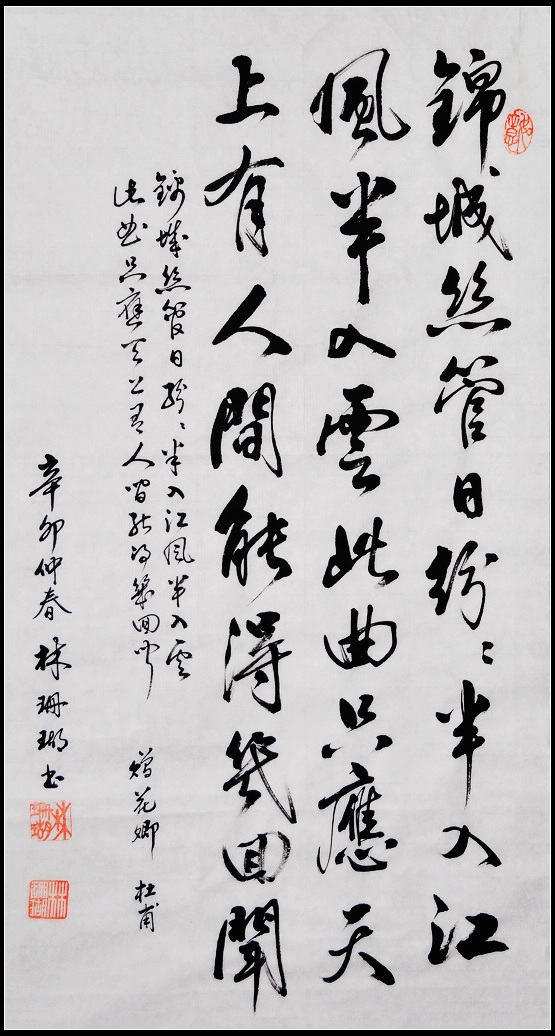 錦城絲管日紛〻半入江
風半入雲此曲只應天
上有人間能得幾回聞
錦城絲管日紛〻半入江風半入雲
此曲只應天上有人間能得幾回聞
贈花卿 杜甫
辛卯仲春 林珊瑚书
林珊瑚
林珊瑚